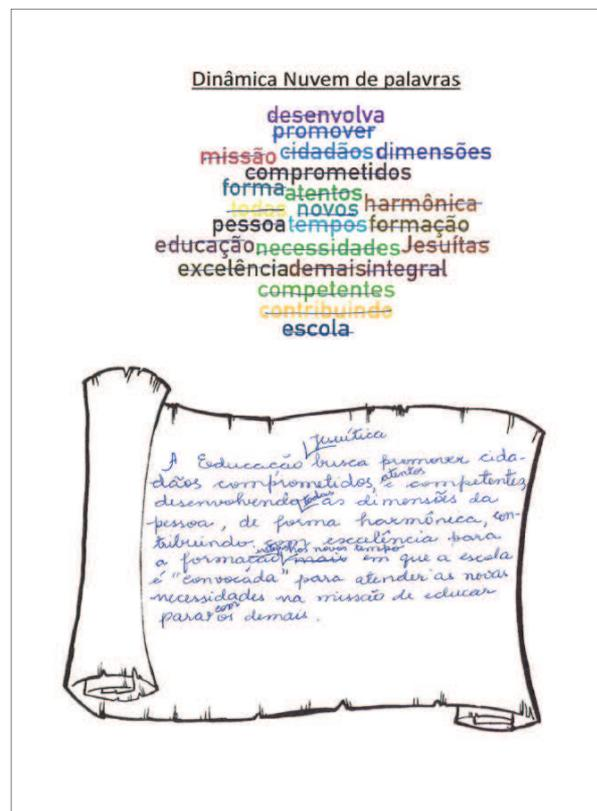 Dinâmica Nuvem de palavras
desenvolva
promover
missão cidadãos dimensões
comprometidos
forma atentos
todas novos harmônica
pessoa tempos formação
educação necessidades Jesuítas
excelência demais integral
competentes
contribuindo
escola
Jesuítica
A Educação busca promover cida-
dãos comprometidos, atentos e competentes
desenvolvendo todas as dimensões da
pessoa, de forma harmônica, con-
tribuindo com excelência para
a formação integral nos novos tempo mais em que a escola
é "convocada" para atender as novas
necessidades na missão de educar
para com os demais.